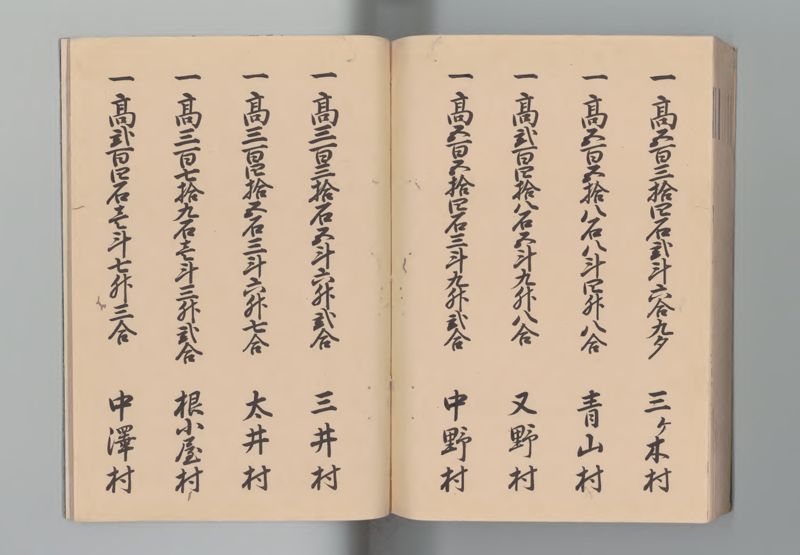 一 高五百三拾四石弐斗六合九夕 三ヶ木村
一 高五百五拾八石八斗四升八合 青山村
一 高弐百四拾八石五斗九升八合 又野村
一 高五百五拾四石三斗九升弐合 中野村
一 高三百三拾石五斗六升弐合 三井村
一 高三百四拾五石三斗六升七合 太井村
一 高三百七拾九石壱斗三升弐合 根小屋村
一 高弐百四石壱斗七升三合 中澤村